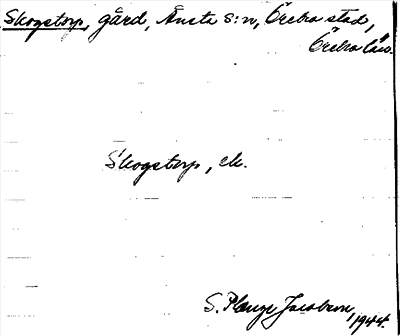 Skogstorp, gård, Ånsta s:n, Örebro stad,
Örebro län.
Skogstorp, ek.
S. Plauge Jacobson,
1944.